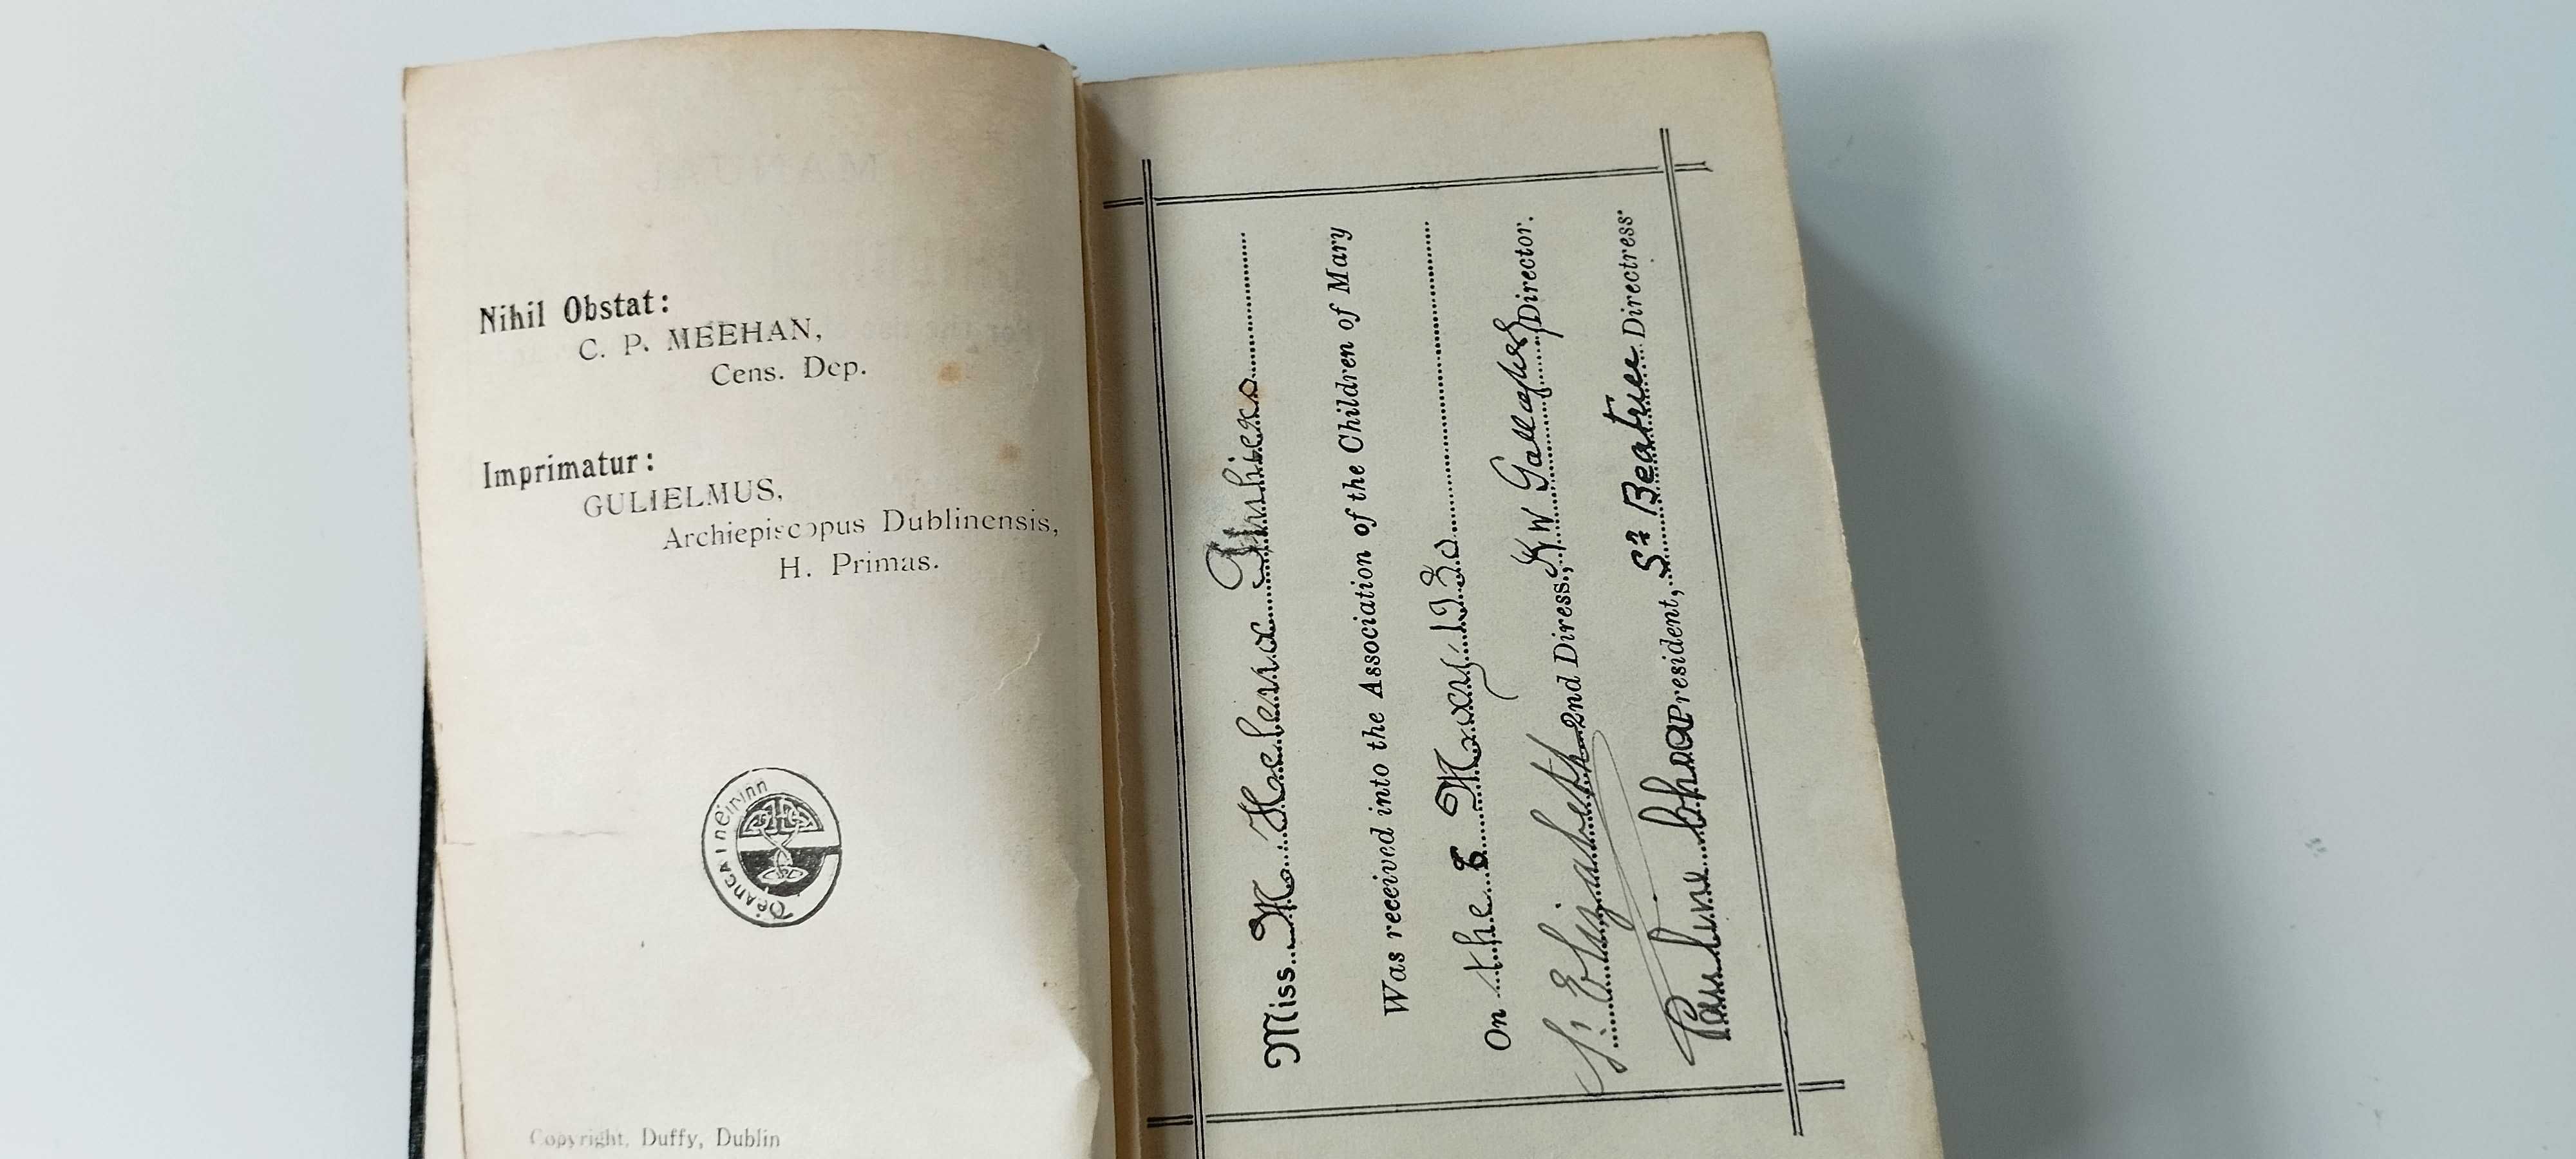 Nihil Obstat:
C. P. MEEHAN,
Cens. Dep.
Imprimatur:
GULIELMUS,
Archiepiscopus Dublinensis,
H. Primas.
Déanta i nÉirinn
Copyright, Duffy, Dublin
Miss M. Helena
Was received into the Association of the Children of Mary
On the 8 May 1930
Sr Elizabeth 2nd Diress., W Gallagher Director.
Pauline President, Sr Beatrice Directress